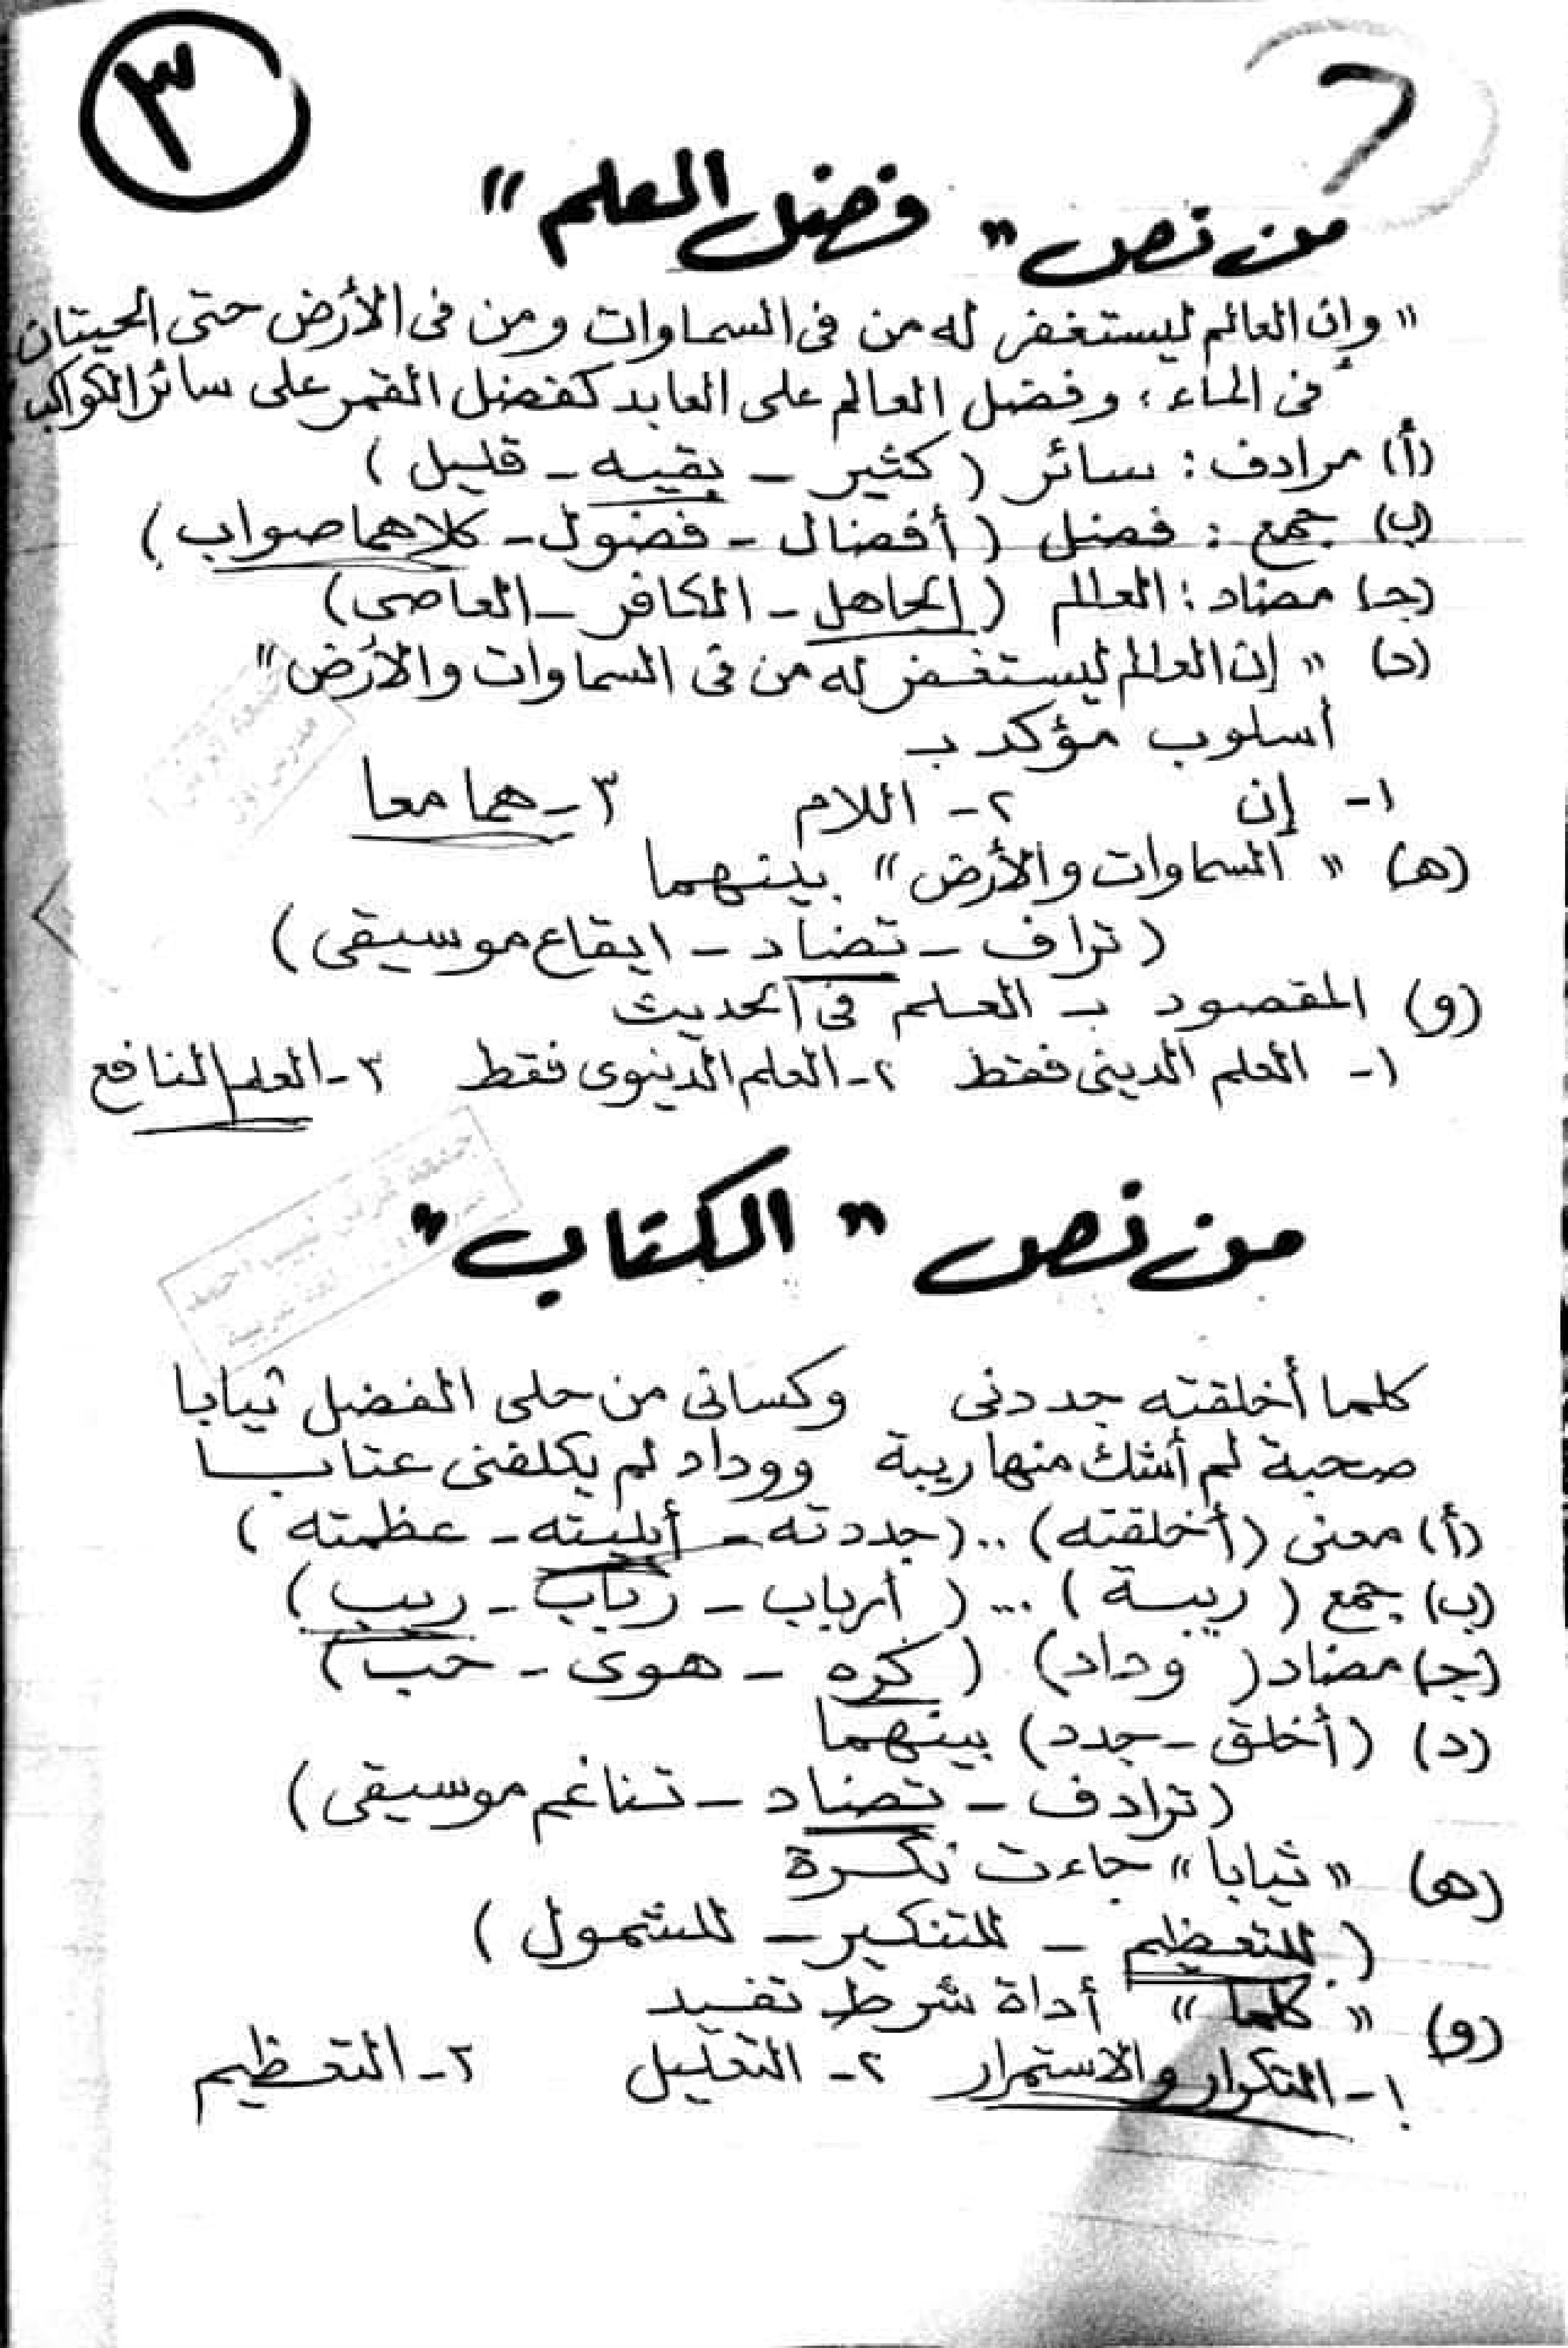 ٣
من نص " فضل العلم "
" وإن العالم ليستغفر له من فى السماوات ومن فى الأرض حتى الحيتان
فى الماء ، وفضل العالم على العابد كفضل القمر على سائر الكواكب
(أ) مرادف : سائر ( كثير - بقيه - قليل )
(ب) جمع : فضل ( أفضال - فضول - كلاهما صواب )
(جـ) مضاد : العالم ( الجاهل - الكافر - العاصى )
(د) " إن العالم ليستغفر له من فى السماوات والأرض "
أسلوب مؤكد بـ
١- إن ٢- اللام ٣- هما معا
(هـ) " السماوات والأرض " بينهما
( تراف - تضاد - ايقاع موسيقى )
(و) المقصود بـ العلم فى الحديث
١- العلم الدينى فقط ٢- العلم الدينوى فقط ٣- العلم النافع
من نص " الكتاب "
كلما أخلقته جددنى وكسانى من حلى الفضل ثيابا
صحبة لم أشك منها ريبة ووداد لم يكلفنى عتابا
(أ) معنى (أخلقته) .. (جددته - أبليته - عظمته )
(ب) جمع ( ريبة ) ... ( أرباب - رباب - ريب )
(جـ) مضاد ( وداد ) ( كره - هوى - حب )
(د) (أخلق - جدد) بينهما
(ترادف - تضاد - تناغم موسيقى )
(هـ) " ثيابا " جاءت نكرة
( للتعظيم - للتنكير - للشمول )
(و) " كلما " أداة شرط تفيد
١- التكرار والاستمرار ٢- التعليل ٣- التعظيم